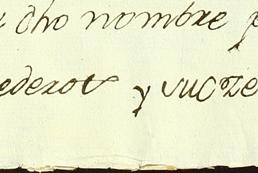 dho nombre
ederos y succe